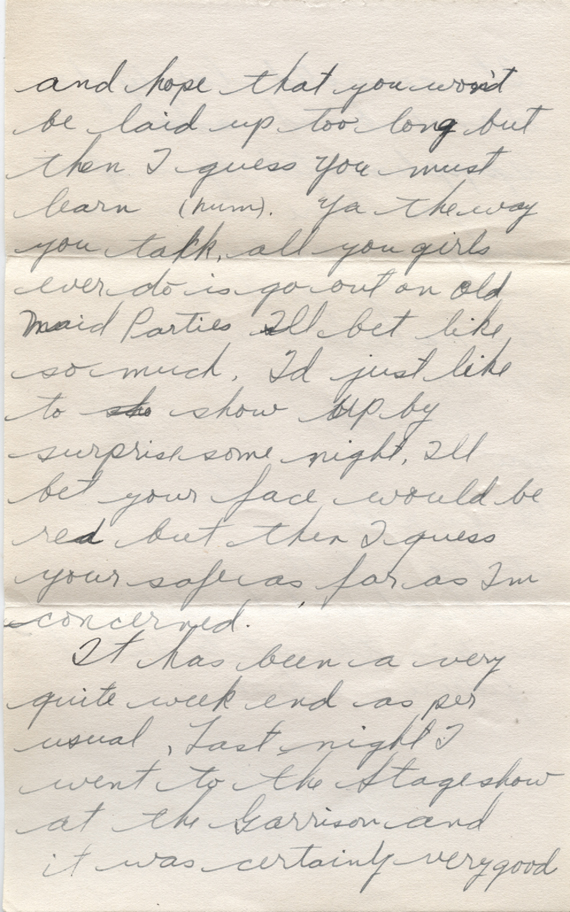 and hope that you won't
be laid up too long but
then I guess you must
learn (hum). Ya the way
you talk, all you girls
ever do is go out on old
Maid Parties I'll bet like
so much. I'd just like
to sho show up by
surprise some night, I'll
bet your face would be
red but then I guess
your safe as far as I'm
concerned.
It has been a very
quite week end as per
usual, Last night I
went to the Stageshow
at the Garrison and
it was certainly very good